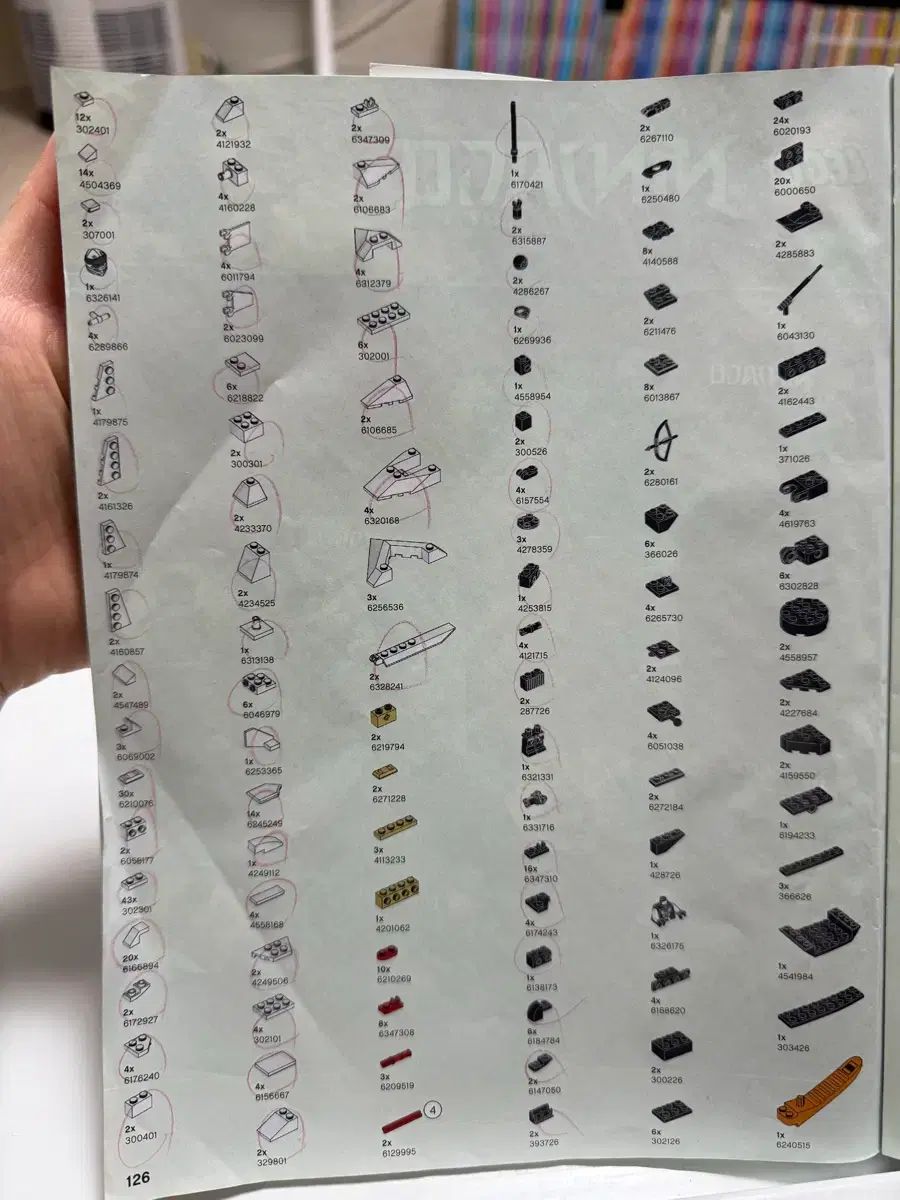 12x
302401
14x
4504369
2x
307001
1x
6326141
4x
6289866
1x
4179875
2x
4161326
1x
4179874
2x
4160857
2x
4547489
3x
6069002
30x
6210076
2x
6056177
43x
302301
20x
6166894
2x
6172927
4x
6176240
2x
300401
2x
4121932
4x
4160228
4x
6011794
2x
6023099
6x
6218822
2x
300301
2x
4233370
2x
4234525
1x
6313138
6x
6046979
1x
6253365
14x
6245249
1x
4249112
4x
4558168
2x
4249506
4x
302101
4x
6156667
2x
329801
2x
6347309
2x
6106683
4x
6312379
6x
302001
2x
6106685
4x
6320168
3x
6256536
2x
6328241
2x
6219794
2x
6271228
3x
4113233
1x
4201062
10x
6210269
8x
6347308
3x
6209519
4
2x
6129995
1x
6170421
2x
6315887
2x
4286267
1x
6269936
1x
4558954
2x
300526
4x
6157554
3x
4278359
1x
4253815
4x
4121715
2x
287726
1x
6321331
1x
6331716
16x
6347310
4x
6174243
1x
6138173
6x
6184784
2x
6147050
2x
393726
2x
6267110
1x
6250480
8x
4140588
2x
6211476
8x
6013867
2x
6280161
6x
366026
4x
6265730
2x
4124096
4x
6051038
2x
6272184
1x
428726
1x
6326175
4x
6168620
2x
300226
6x
302126
24x
6020193
20x
6000650
2x
4285883
1x
6043130
2x
4162443
1x
371026
4x
4619763
6x
6302828
2x
4558957
2x
4227684
2x
4159550
1x
6194233
3x
366626
1x
4541984
1x
303426
1x
6240515
126